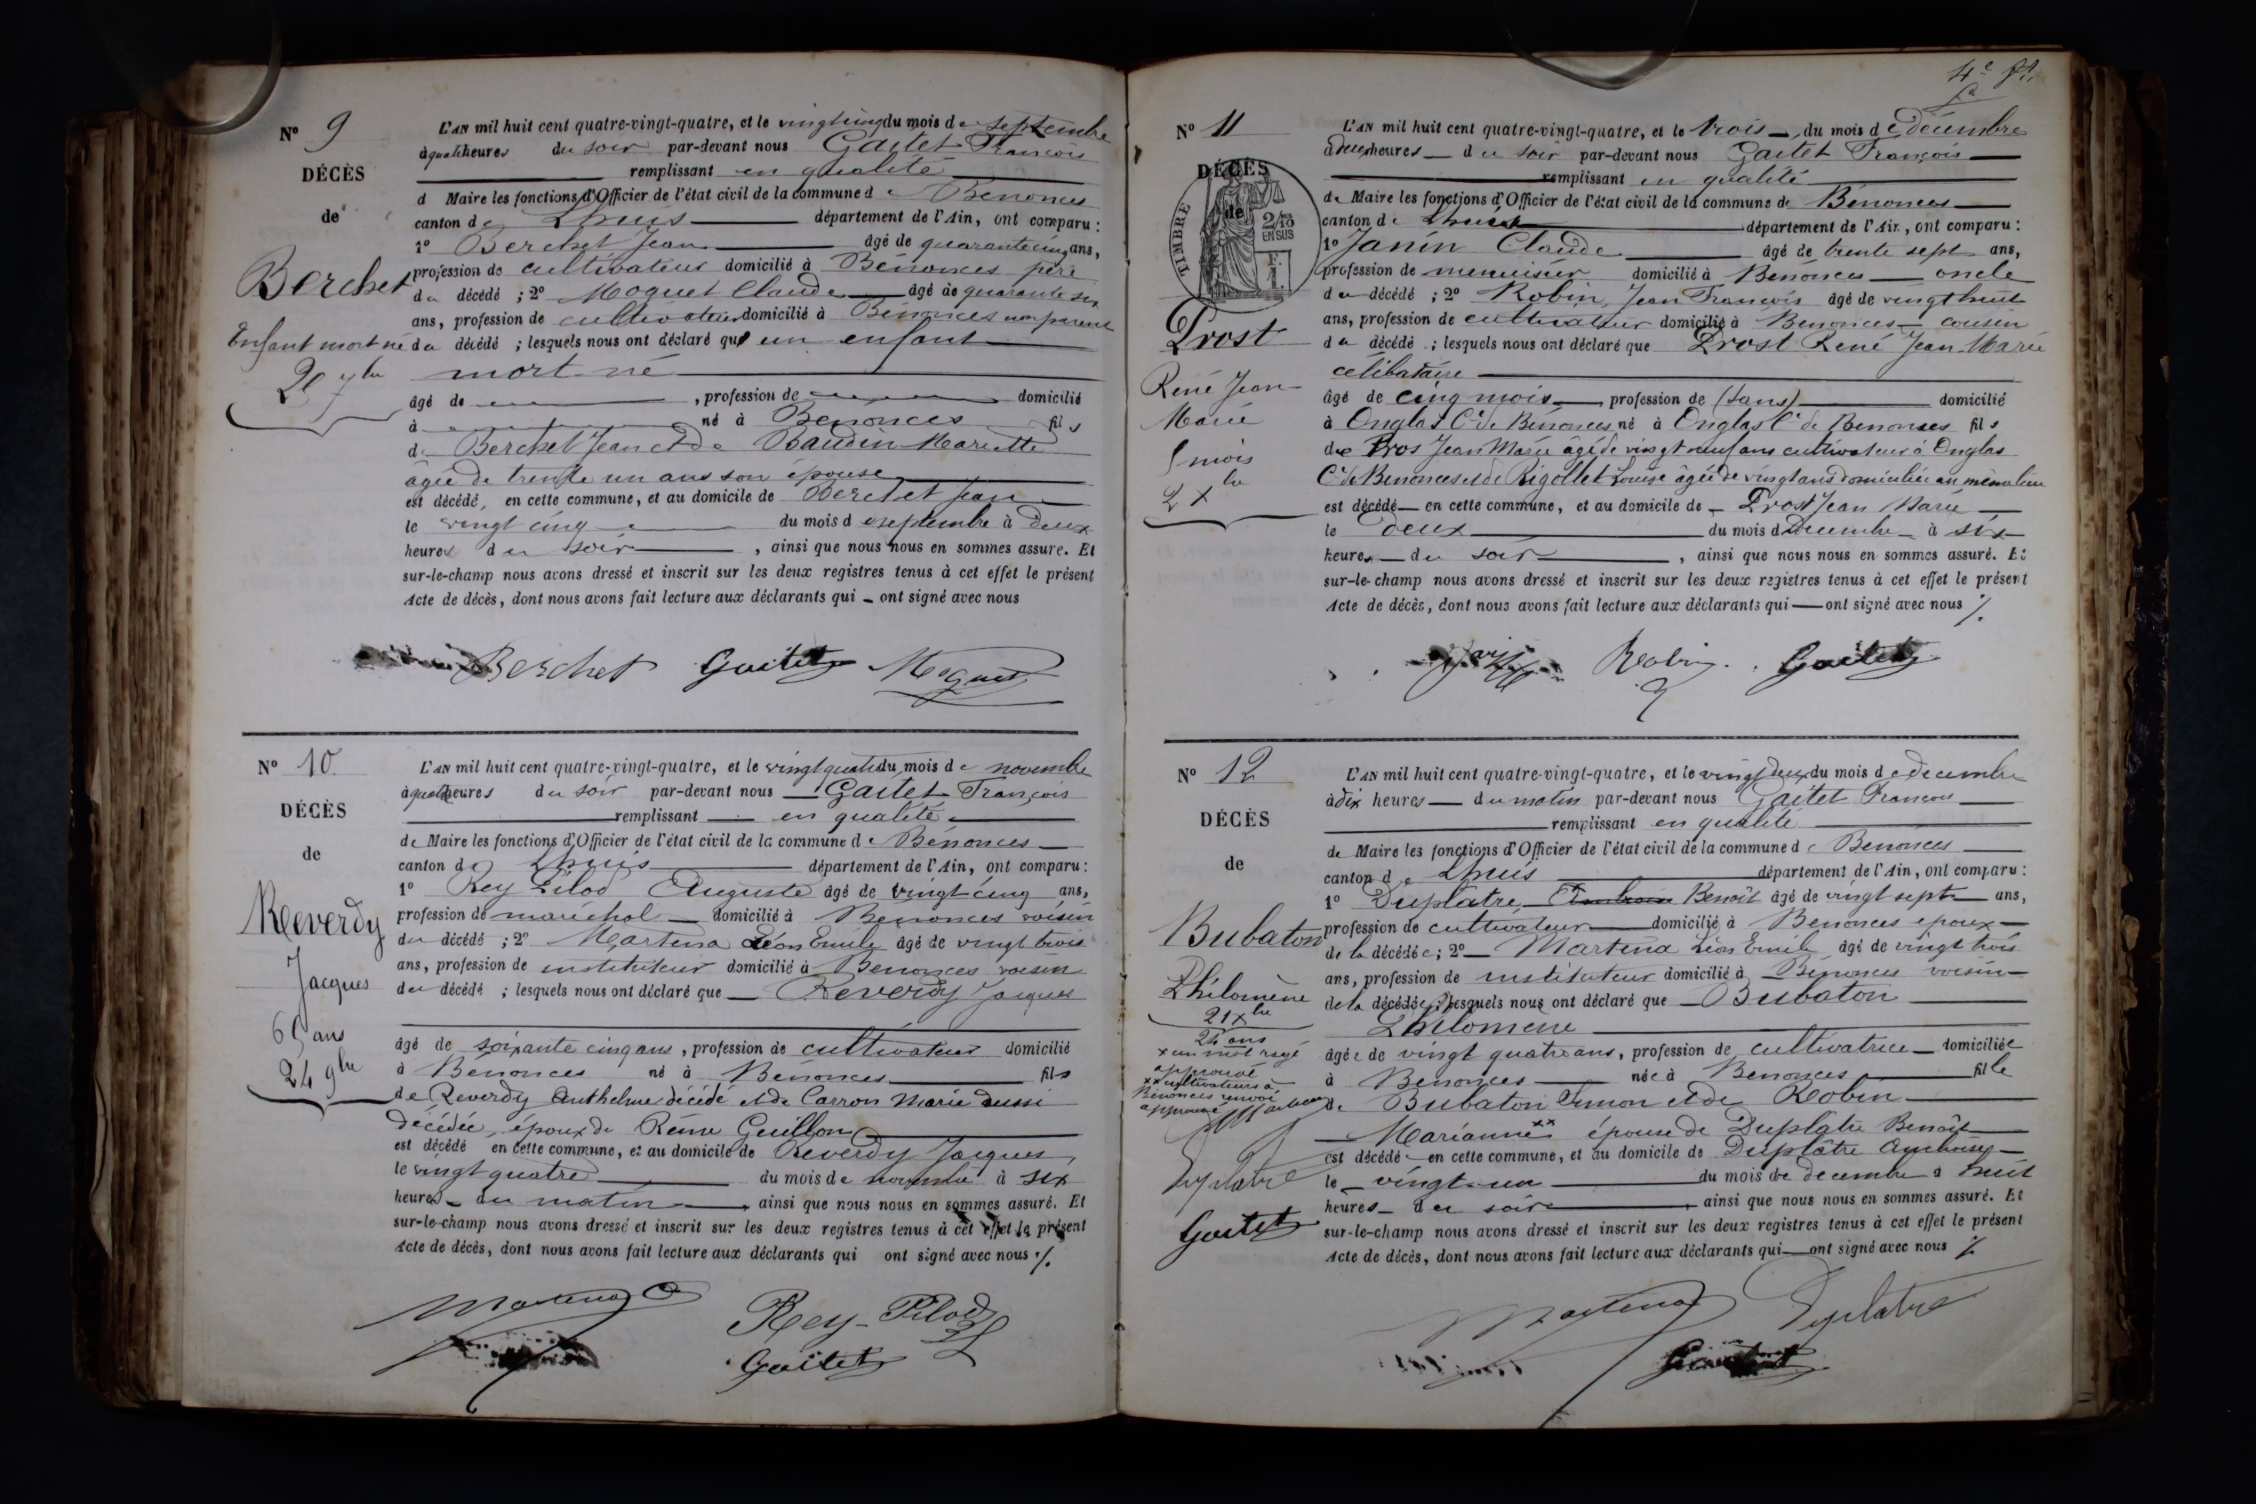 Nº 9
DÉCÈS
de
Berchet
Enfant mort né
25 7bre
L'AN mil huit cent quatre-vingt-quatre, et le vingt cinq du mois de septembre
à quatre heures du soir par-devant nous Gaitet François
remplissant en qualité
d Maire les fonctions d'Officier de l'état civil de la commune de Bénonces
canton de Lhuis département de l'Ain, ont comparu :
1º Berchet Jean âgé de quarante cinq ans,
profession de cultivateur domicilié à Bénonces père
du décédé ; 2º Moquet Claude âgé de quarante six
ans, profession de cultivateur domicilié à Bénonces non parent
du décédé ; lesquels nous ont déclaré que un enfant
mort-né
âgé de , profession de domicilié
à né à Bénonces fils
de Berchet Jean et de Baudin Mariette
âgée de trente un ans son épouse
est décédé, en cette commune, et au domicile de Berchet Jean
le vingt cinq du mois de septembre à deux
heures du soir , ainsi que nous nous en sommes assuré. Et
sur-le-champ nous avons dressé et inscrit sur les deux registres tenus à cet effet le présent
Acte de décès, dont nous avons fait lecture aux déclarants qui ont signé avec nous
Berchet Gaitet Moquet
Nº 10
DÉCÈS
de
Reverdy
Jacques
65 ans
24 9bre
L'AN mil huit cent quatre-vingt-quatre, et le vingt quatre du mois de novembre
à quatre heures du soir par-devant nous Gaitet François
remplissant en qualité
de Maire les fonctions d'Officier de l'état civil de la commune de Bénonces
canton de Lhuis département de l'Ain, ont comparu :
1º Rey Pilod Auguste âgé de vingt cinq ans,
profession de maréchal domicilié à Bénonces voisin
du décédé ; 2º Martena Léon Emile âgé de vingt trois
ans, profession de instituteur domicilié à Bénonces voisin
du décédé ; lesquels nous ont déclaré que Reverdy Jacques
âgé de soixante cinq ans, profession de cultivateur domicilié
à Bénonces né à Bénonces fils
de Reverdy Anthelme décédé et de Carron Marie aussi
décédée, époux de Reine Guillon
est décédé en cette commune, et au domicile de Reverdy Jacques
le vingt quatre du mois de novembre à six
heures du matin , ainsi que nous nous en sommes assuré. Et
sur-le-champ nous avons dressé et inscrit sur les deux registres tenus à cet effet le présent
Acte de décès, dont nous avons fait lecture aux déclarants qui ont signé avec nous ./.
Martena Rey-Pilod
Gaitet
4e
Nº 11
DÉCÈS
de
TIMBRE
2/10
EN SUS
F.
1.
Prost
René Jean
Marie
5 mois
2 Xbre
L'AN mil huit cent quatre-vingt-quatre, et le trois du mois de décembre
à deux heures du soir par-devant nous Gaitet François
remplissant en qualité
de Maire les fonctions d'Officier de l'état civil de la commune de Bénonces
canton de Lhuis département de l'Ain, ont comparu :
1º Janin Claude âgé de trente sept ans,
profession de menuisier domicilié à Bénonces oncle
du décédé ; 2º Robin Jean François âgé de vingt huit
ans, profession de cultivateur domicilié à Bénonces cousin
du décédé ; lesquels nous ont déclaré que Prost René Jean Marie
célibataire
âgé de cinq mois , profession de (sans) domicilié
à Onglas Cne de Bénonces né à Onglas Cne de Bénonces fils
de Pros Jean Marie âgé de vingt neuf ans cultivateur à Onglas
Cne de Bénonces et de Rigollet Louise âgée de vingt ans domiciliée au même lieu
est décédé en cette commune, et au domicile de Prost Jean Marie
le deux du mois de décembre à six
heures du soir , ainsi que nous nous en sommes assuré. Et
sur-le-champ nous avons dressé et inscrit sur les deux registres tenus à cet effet le présent
Acte de décès, dont nous avons fait lecture aux déclarants qui ont signé avec nous ./.
Robin Gaitet
Nº 12
DÉCÈS
de
Bubaton
Philomène
21 Xbre
24 ans
x un mot rayé
approuvé
xx cultivateurs à
Bénonces renvoi
approuvé Martena
Duplatre
Gaitet
L'AN mil huit cent quatre-vingt-quatre, et le vingt deux du mois de decembre
à dix heures du matin par-devant nous Gaitet François
remplissant en qualité
de Maire les fonctions d'Officier de l'état civil de la commune de Bénonces
canton de Lhuis département de l'Ain, ont comparu :
1º Duplatre Ambroise Benoit âgé de vingt sept ans,
profession de cultivateur domicilié à Benonces epoux
de la décédée ; 2º Martena Léon Emile âgé de vingt trois
ans, profession de instituteur domicilié à Bénonces voisin
de la décédée ; lesquels nous ont déclaré que Bubaton
Philomène
âgée de vingt quatre ans, profession de cultivatrice domiciliée
à Benonces née à Benonces fille
de Bubaton Simon et de Robin
Marianne xx épouse de Duplatre Benoît
est décédée en cette commune, et au domicile de Duplâtre Ambroise
le vingt-un du mois de decembre à huit
heures du soir , ainsi que nous nous en sommes assuré. Et
sur-le-champ nous avons dressé et inscrit sur les deux registres tenus à cet effet le présent
Acte de décès, dont nous avons fait lecture aux déclarants qui ont signé avec nous ./.
Martena Duplatre
Gaitet